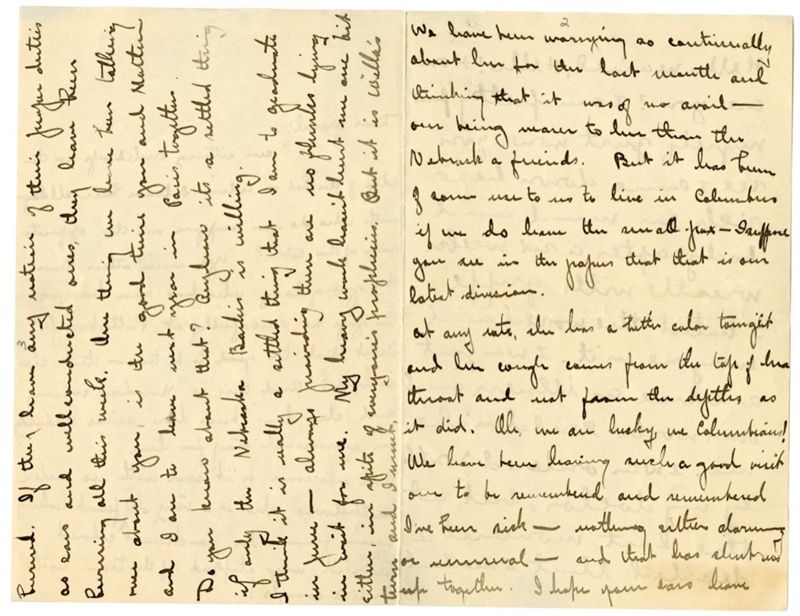 2
We have been worrying so continually
about her for the last month and
thinking that it was of no avail —
our being nearer to her than the
Nebraska friends. But it has been
of some use to us to live in Columbus
if we do have the small pox — I suppose
you see in the papers that that is our
latest division.
At any rate, she has a better color tonight
and her cough comes from the top of her
throat and not from the depths as
it did. Oh, we are lucky, we Columbians!
We have been having such a good visit
one to be remembered and remembered
I've been sick — nothing either alarming
or unusual — and that has shut us
up together. I hope your ears have
3
burned. If they leave any notion of their proper duties
as ears and well conducted ones, they have been
burning all this week. One thing we have been talking
over about you is the good time you and Mattin
and I are to have next year in Paris together.
Do you know about that? Anyhow its a settled thing
if only the Nebraska Banker is willing
I think it is really a settled thing that I am to graduate
in June — always providing there are no flunks lying
in wait for me. My heavy work hasn't hurt me one bit
either, in spite of everyone's prophecies. But it is Willa's
turn and I must